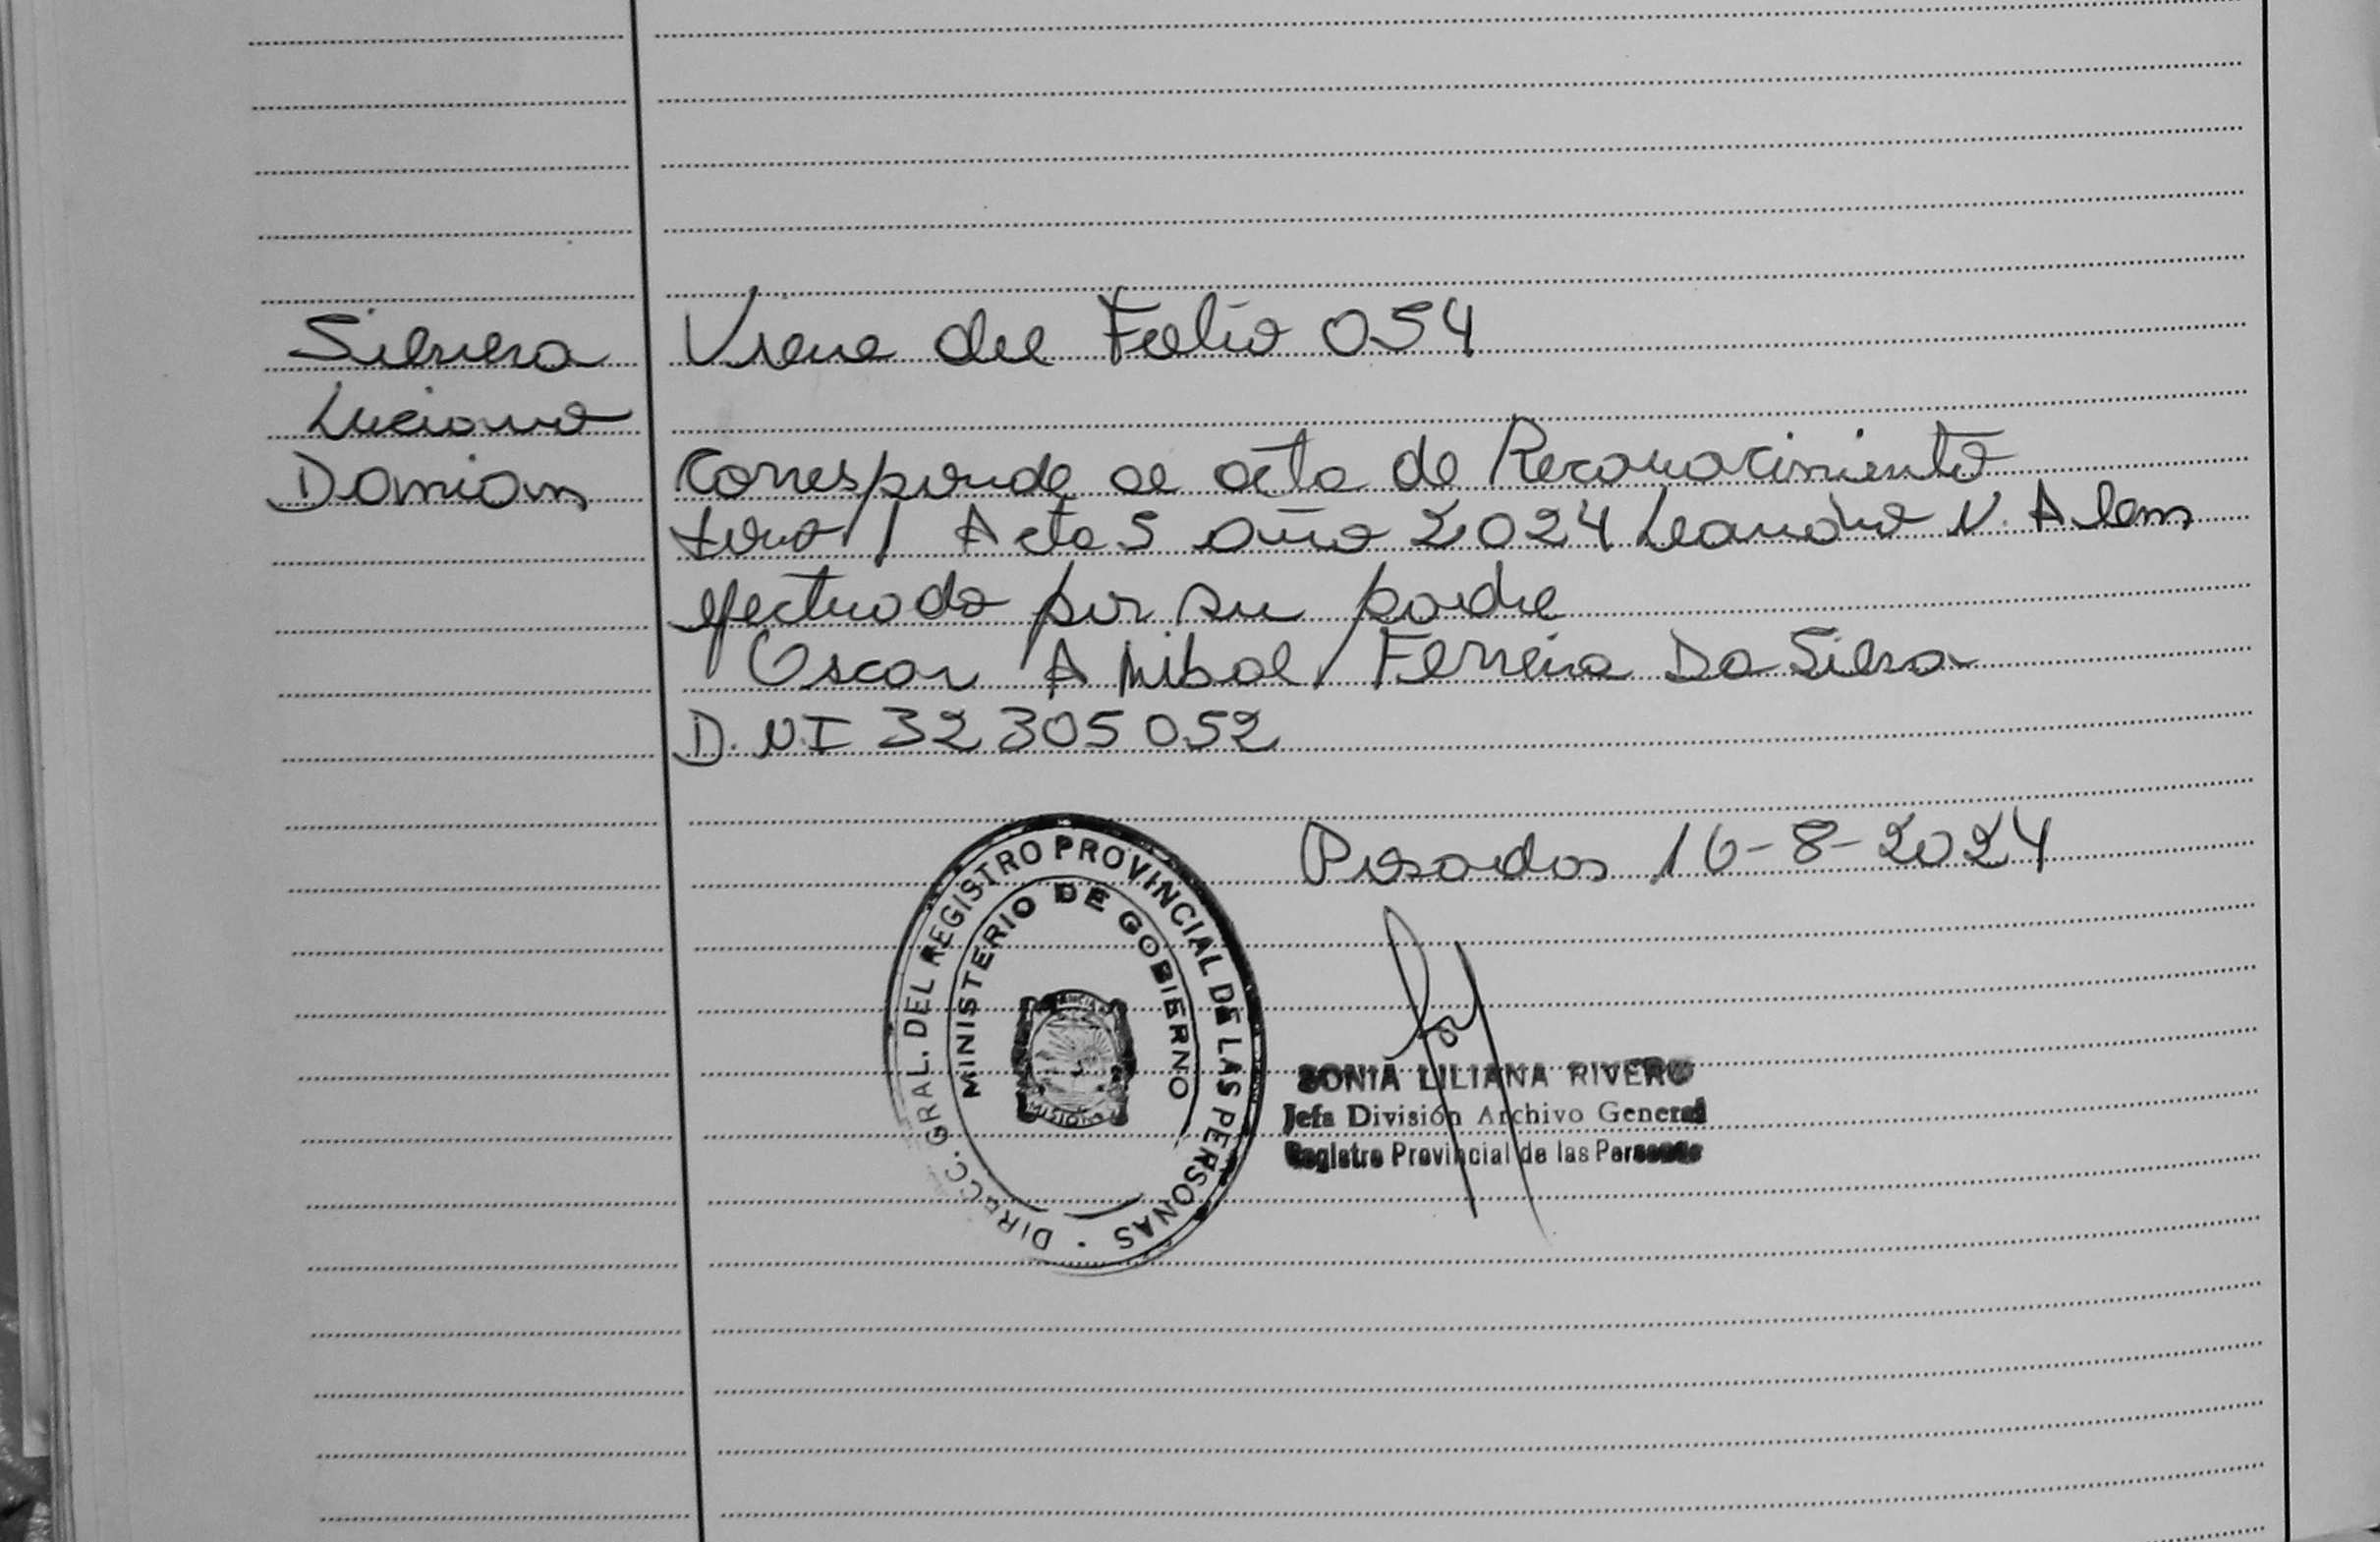 Silvera
Luciano
Damian
Viene del Folio 054
Corresponde al acta de Reconocimiento
tomo 1 Acta 5 año 2024 Leandro N. Alem
efectuado por su padre
Oscar Anibal Ferreira Da Silva
D.N.I 32305052
Posadas 16-8-2024
DIRECC. GRAL. DEL REGISTRO PROVINCIAL DE LAS PERSONAS
MINISTERIO DE GOBIERNO
MISIONES
SONIA LILIANA RIVERO
Jefa División Archivo General
Registro Provincial de las Personas